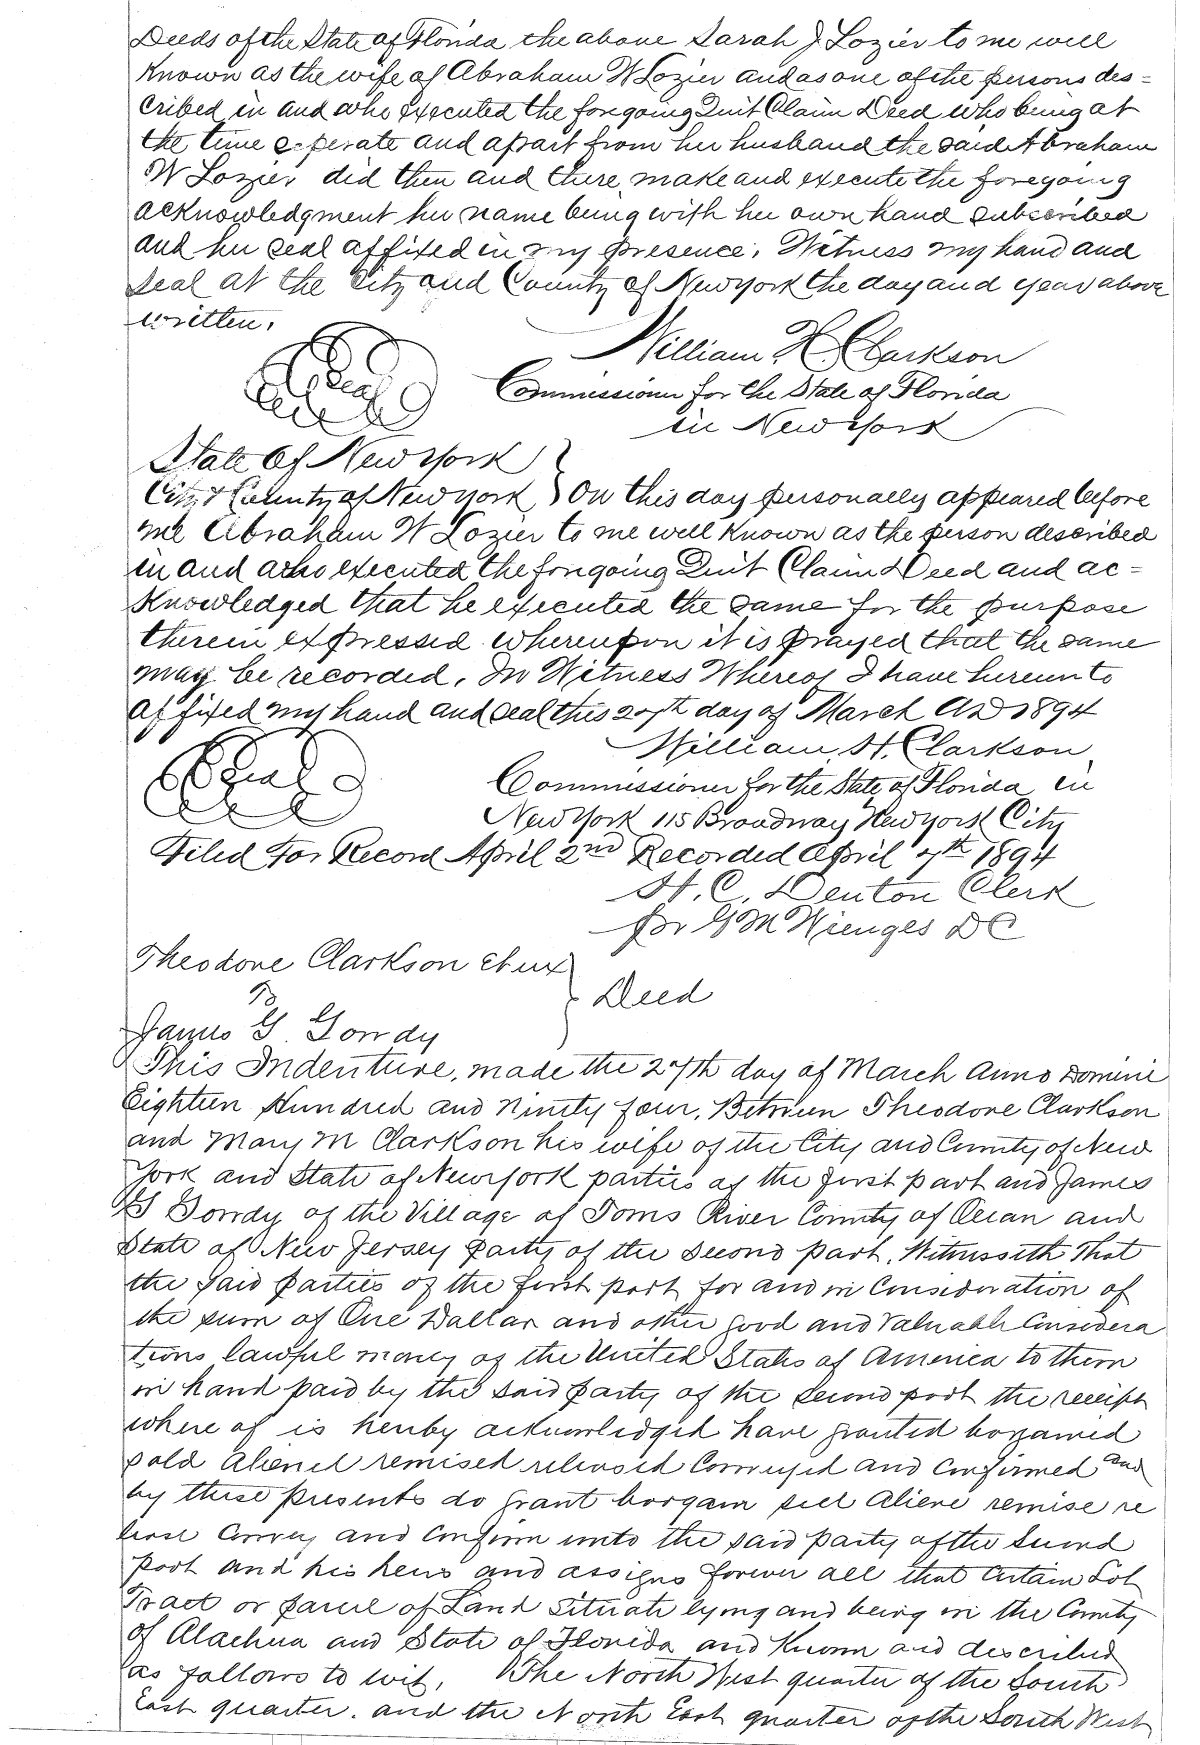 Deeds of the State of Florida the above Sarah J Lozier to me well
Known as the wife of Abraham W Lozier and as one of the persons des=
cribed in and who executed the foregoing Quit Claim Deed who being at
the time seperate and apart from her husband the said Abraham
W Lozier did then and there make and execute the foregoing
acknowledgment her name being with her own hand subscribed
and her seal affixed in my presence. Witness my hand and
seal at the City and County of New York the day and year above
written.
William H. Clarkson
Seal
Commissioner for the State of Florida
in New York
State of New York
City & County of New York } On this day personally appeared before
me Abraham W Lozier to me well Known as the person described
in and who executed the foregoing Quit Claim Deed and ac=
Knowledged that he executed the same for the purpose
therein expressed whereupon it is prayed that the same
may be recorded. In Witness Whereof I have hereunto
affixed my hand and seal this 27th day of March AD 1894
William H. Clarkson
Seal
Commissioner for the State of Florida in
New York 115 Broadway New York City
Filed For Record April 2nd Recorded April 7th 1894
H. C. Denton Clerk
for G M Wienges DC
Theodore Clarkson et ux
To } Deed
James G Gowdy
This Indenture, made the 27th day of March Anno Domini
Eighteen Hundred and Ninety four, Between Theodore Clarkson
and Mary M Clarkson his wife of the City and County of New
York and State of New York parties of the first part and James
G Gowdy of the Village of Toms River County of Ocean and
State of New Jersey party of the second part, Witnesseth That
the said parties of the first part for and in Consideration of
the sum of One Dollar and other good and valuable Considera
tions lawful money of the United States of America to them
in hand paid by the said party of the second part the receipt
where of is hereby acknowledged have granted bargained
sold aliened remised released Conveyed and Confirmed and
by these presents do grant bargain sell aliene remise re
lease Convey and Confirm unto the said party of the Second
part and his heirs and assigns forever all that Certain Lot
Tract or parcel of Land situate lying and being in the County
of Alachua and State of Florida and Known and described
as follows to wit. The North West quarter of the South
East quarter. and the North East quarter of the South West